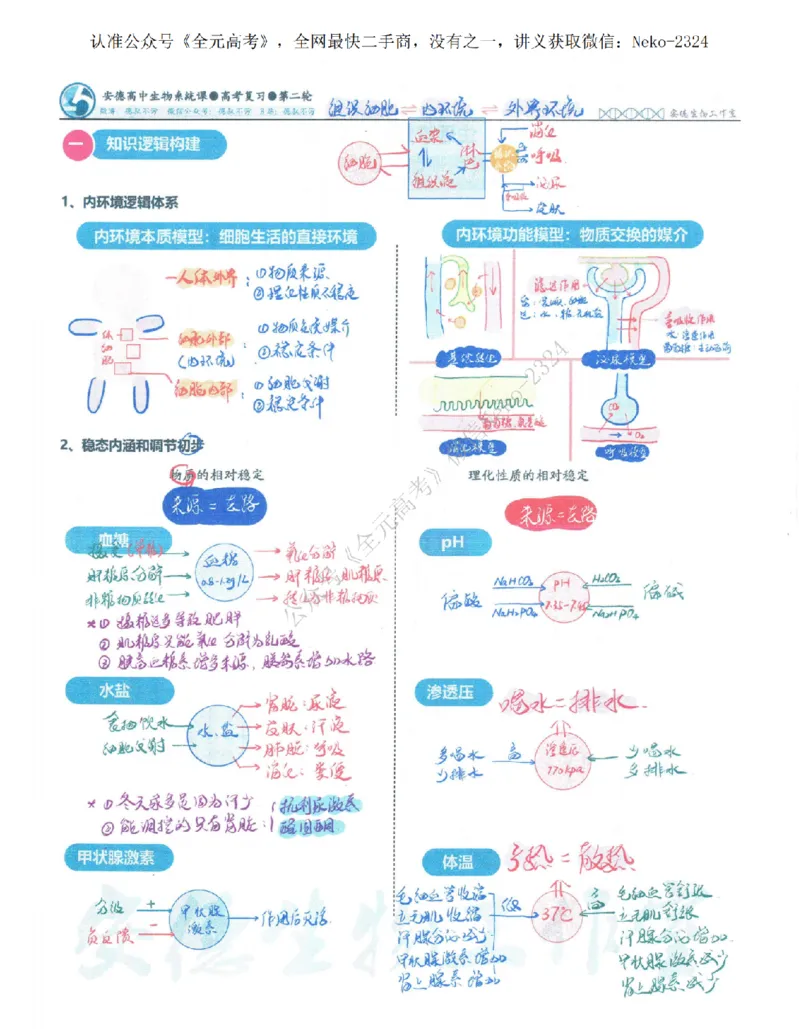 认准公众号《全元高考》，全网最快二手商，没有之一，讲义获取微信：Neko-2324
安德高中生物系统课●高考复习●第二轮
组织细胞 ⇌ 内环境 ⇌ 外界环境
安德生物工作室
一 知识逻辑构建
细胞
血浆
淋巴
组织液
消化
呼吸
泌尿
皮肤
1、内环境逻辑体系
内环境本质模型：细胞生活的直接环境
人体外界：①物质来源
②理化性质不稳定
体细胞
细胞外部（内环境）：①物质交换媒介
②稳定条件
细胞内部：①细胞代谢
②稳定条件
内环境功能模型：物质交换的媒介
渗透作用
重吸收作用
水：渗透作用
葡萄糖：主动运输
具体模型
泌尿模型
消化模型
CO₂
O₂
呼吸模型
2、稳态内涵和调节初步
物质的相对稳定
来源=去路
血糖
肝糖原分解
非糖物质转化
血糖
0.8-1.2g/L
氧化分解
肝糖原、肌糖原
转化为非糖物质
*①摄糖过多导致肥胖
②肌糖原只能氧化分解为乳酸
③胰高血糖素增多来源，胰岛素增加去路
水盐
食物饮水
细胞代谢
水、盐
肾脏：尿液
皮肤：汗液
肺脏：呼吸
消化：粪便
*①冬天尿多是因为汗少
②能调控的只有肾脏：
抗利尿激素
醛固酮
甲状腺激素
分级 +
负反馈 −
甲状腺激素
作用后灭活
理化性质的相对稳定
来源=去路
pH
偏酸
NaHCO₃
NaH₂PO₄
pH
7.35-7.45
H₂CO₃
Na₂HPO₄
偏碱
渗透压
喝水=排水
多喝水
少排水
高
渗透压
770kpa
少喝水
多排水
体温
产热=散热
毛细血管收缩
立毛肌收缩
汗腺分泌减少
甲状腺激素增加
肾上腺素增加
低
37℃
高
毛细血管舒张
立毛肌舒张
汗腺分泌增加
甲状腺激素减少
肾上腺素减少
公众号《全元高考》微信:Neko-2324
安德生物工作室